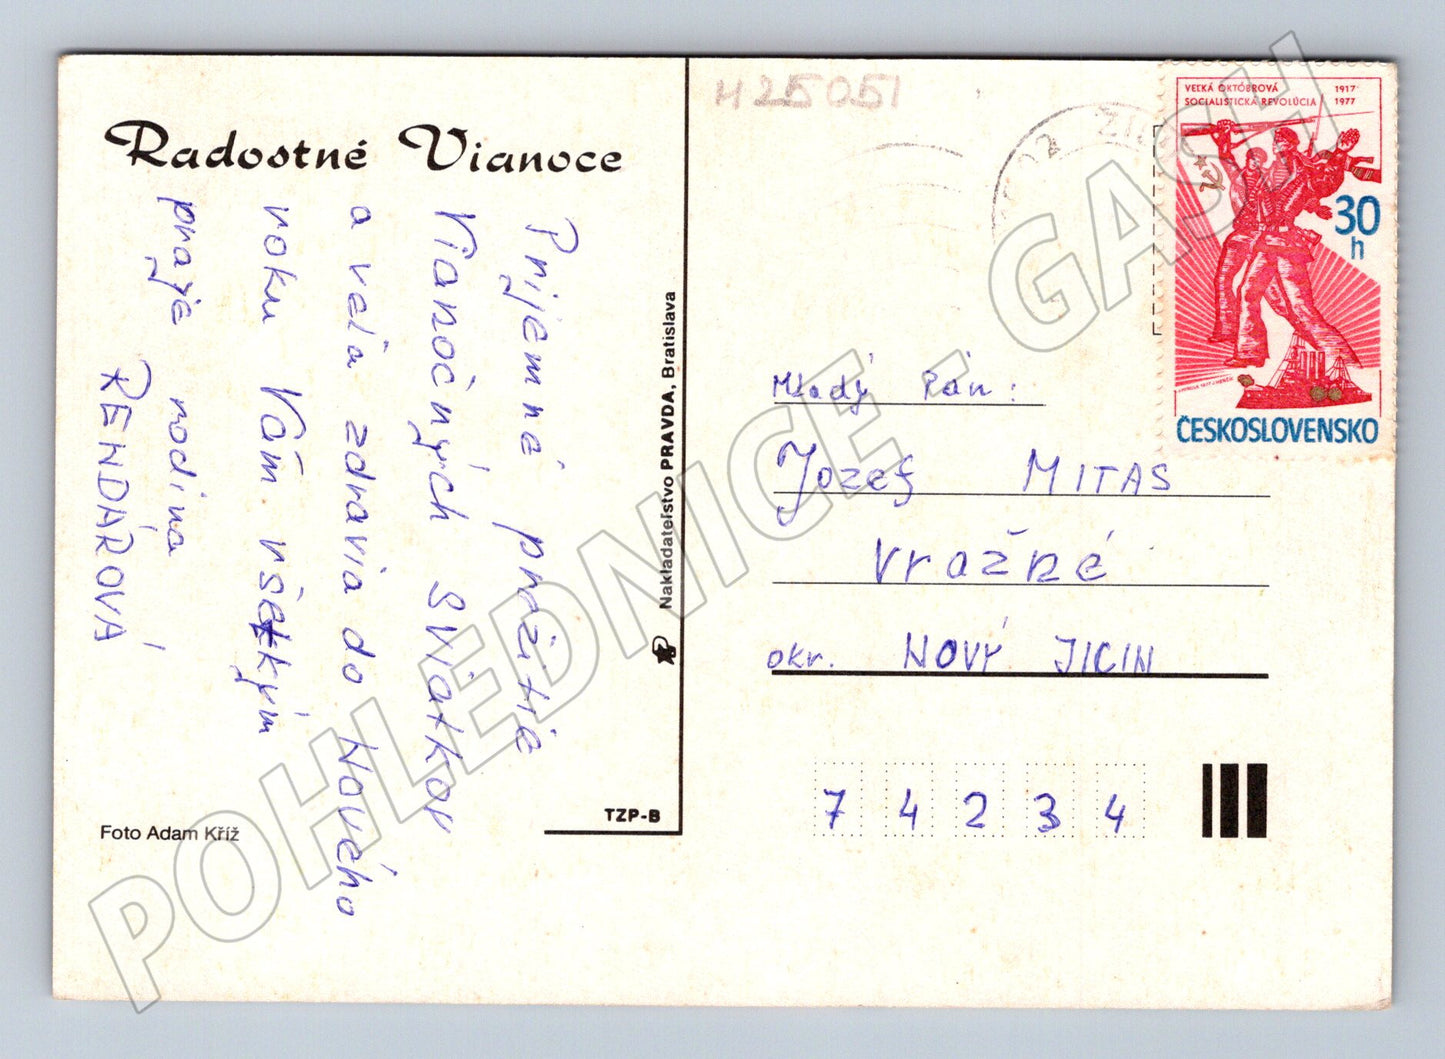 Radostné Vianoce
Prijemné prežitie
Vianočných sviatkov
a veľa zdravia do Nového
roku Vám všetkým
praje rodina
RENDÁROVÁ
Foto Adam Kříž
TZP-B
Nakladateľstvo PRAVDA, Bratislava
H25051
VEĽKÁ OKTÓBROVÁ 1917
SOCIALISTICKÁ REVOLÚCIA 1977
30
h
ČESKOSLOVENSKO
Mladý Pán:
Jozef MITAS
Vražné
okr. NOVÝ JICIN
7 4 2 3 4
POHLEDNICE - GASH